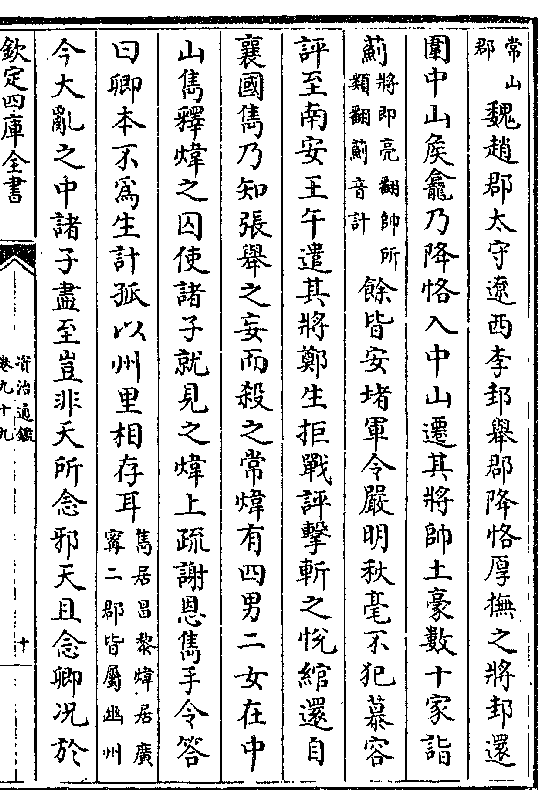 常山
郡
魏趙郡太守遼西李邽舉郡降恪厚撫之將邽還
圍中山侯龕乃降恪入中山遷其將帥土豪數十家詣
薊
將即亮翻帥所
類翻薊音計
餘皆安堵軍令嚴明秋毫不犯慕容
評至南安王午遣其將鄭生拒戰評擊斬之悅綰還自
襄國雋乃知張舉之妄而殺之常煒有四男二女在中
山雋釋煒之囚使諸子就見之煒上疏謝恩雋手令答
曰卿本不爲生計孤以州里相存耳
雋居昌黎煒居廣
寗二郡皆屬幽州
今大亂之中諸子盡至豈非天所念邪天且念卿况於
欽定四庫全書
資治通鑑
卷九十九
十